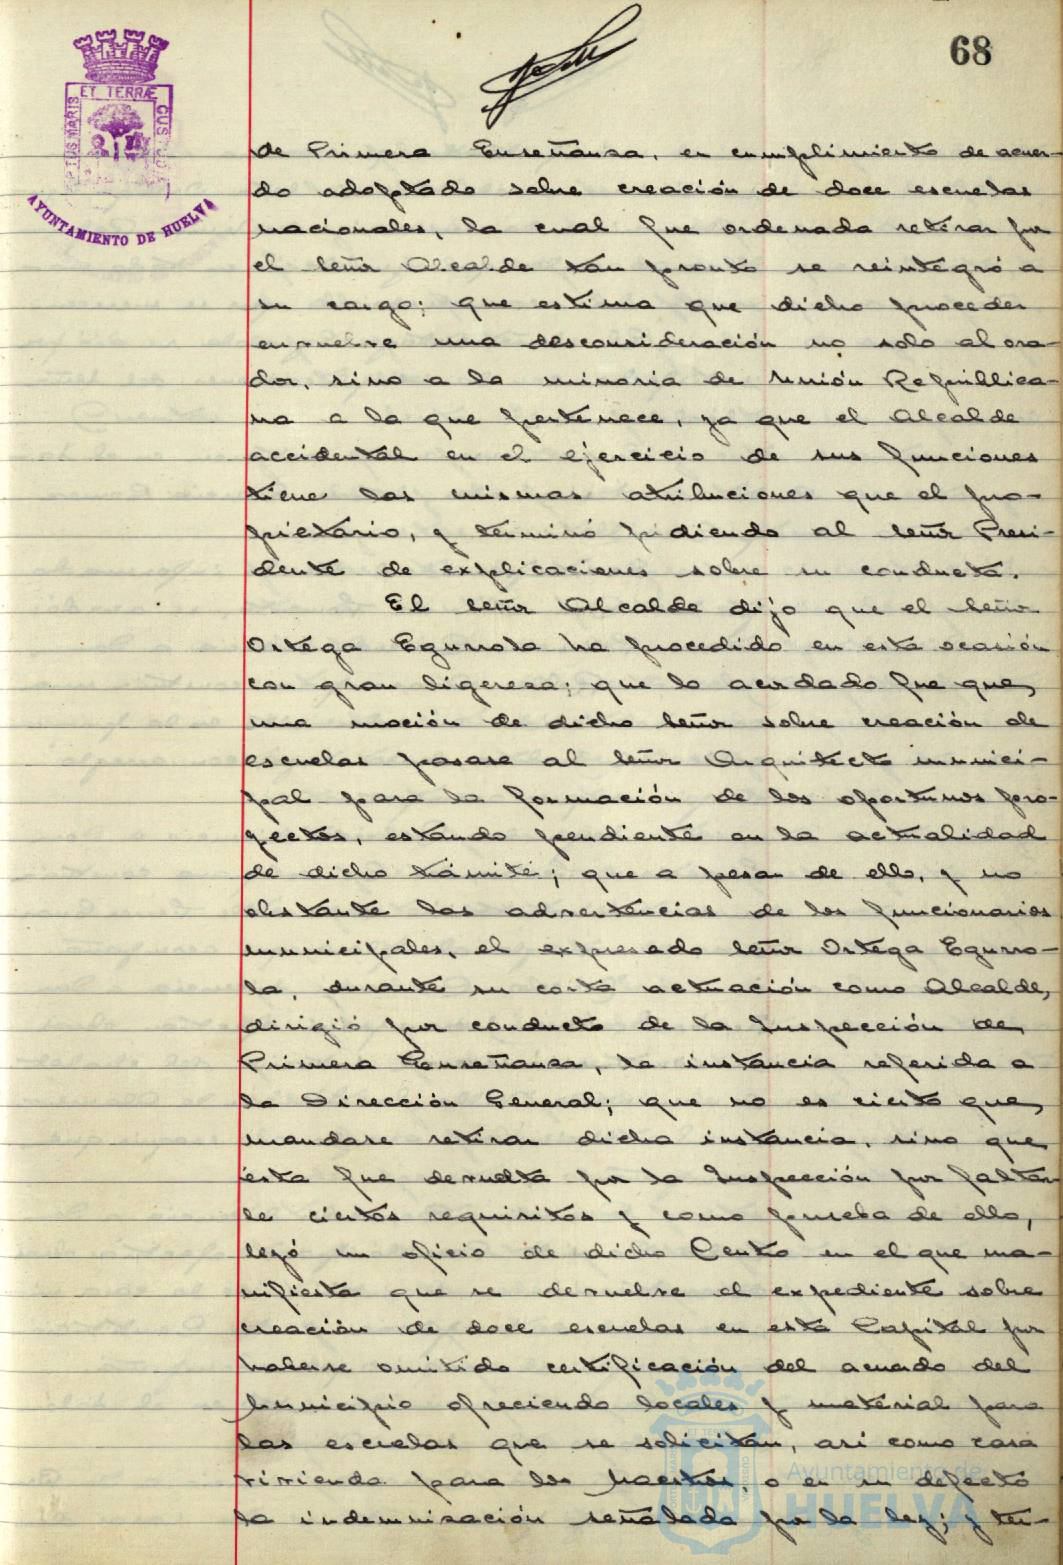 68
ET TERRÆ
PORTUS MARIS
CUS
AYUNTAMIENTO DE HUELVA
de Primera Enseñanza, en cumplimiento de acuer-
do adoptado sobre creación de doce escuelas
nacionales, la cual fue ordenada retirar por
el señor Alcalde tan pronto se reintegró a
su cargo; que estima que dicho proceder
envuelve una desconsideración no solo al ora-
dor, sino a la minoria de Unión Republica-
na a la que pertenece, ya que el Alcalde
accidental en el ejercicio de sus funciones
tiene las mismas atribuciones que el pro-
pietario, y terminó pidiendo al señor Presi-
dente de explicaciones sobre su conducta.
El señor Alcalde dijo que el señor
Ortega Egurrola ha procedido en esta ocasión
con gran ligereza; que lo acordado fue que
una moción de dicho señor sobre creación de
escuelas pasase al señor Arquitecto munici-
pal para la formación de los oportunos pro-
yectos, estando pendiente en la actualidad
de dicho trámite; que a pesar de ello, y no
obstante las advertencias de los funcionarios
municipales, el expresado señor Ortega Egurro-
la, durante su corta actuación como Alcalde,
dirigió por conducto de la Inspección de
Primera Enseñanza, la instancia referida a
la Dirección General; que no es cierto que
mandase retirar dicha instancia, sino que
ésta fue devuelta por la Inspección por faltar
le ciertos requisitos y como prueba de ello,
leyó un oficio de dicho Centro en el que ma-
nifiesta que se devuelve el expediente sobre
creación de doce escuelas en esta Capital por
haberse omitido certificación del acuerdo del
Municipio ofreciendo locales y material para
las escuelas que se solicitan, así como casa
vivienda para los Maestros, o en su defecto
la indemnización señalada por la ley; y ter-
Ayuntamiento de
HUELVA